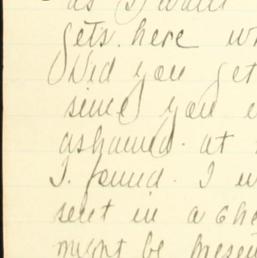 as I
gets here
Did you get
since you
ashamed. at
I. found. I
sent in a che
might be presen